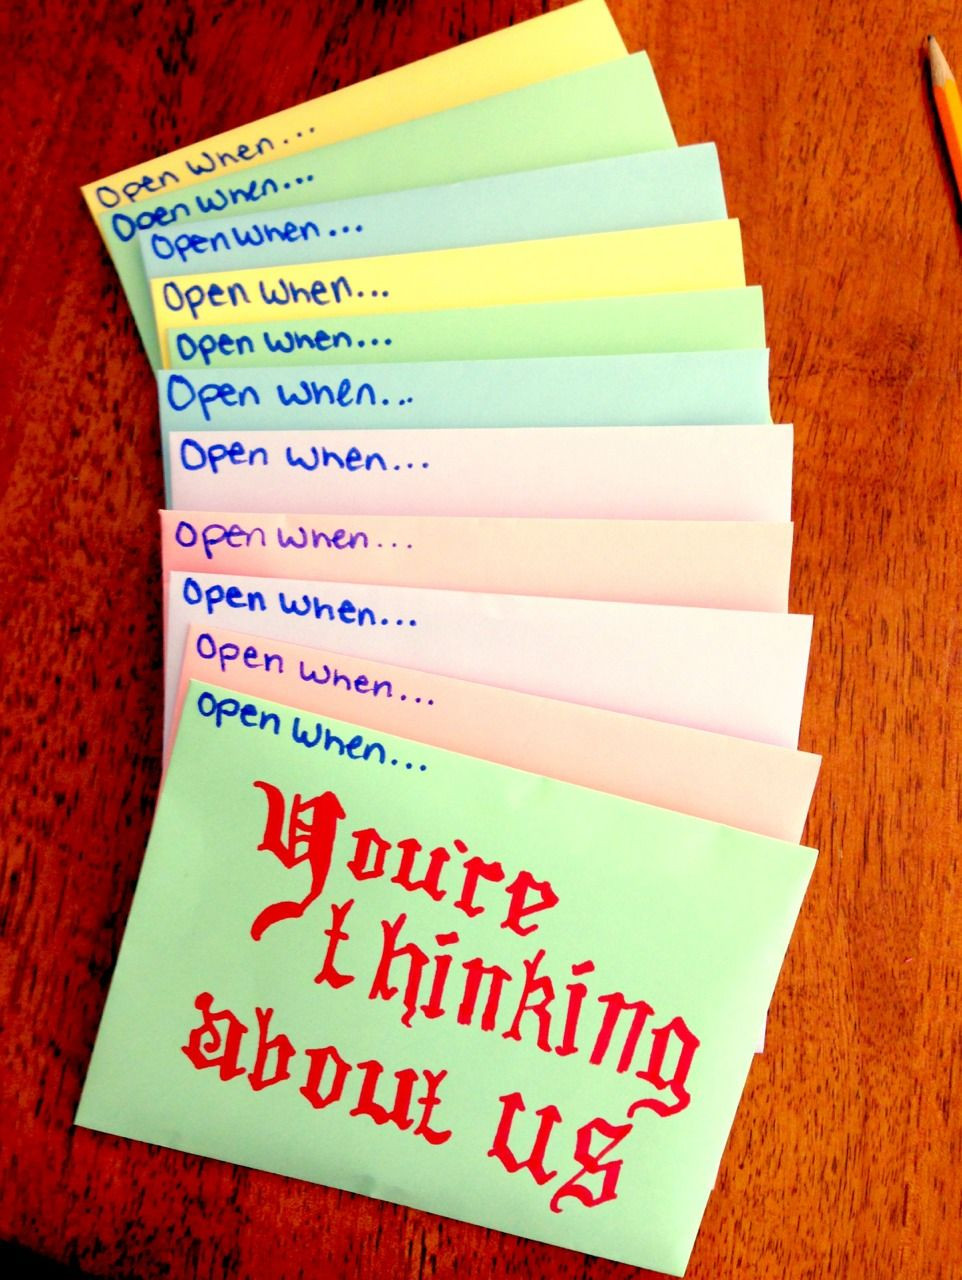 Open When...
Open When...
Open When...
Open When...
Open When...
Open When...
Open When...
Open When...
Open When...
Open When...
Open When...
You're
thinking
about us